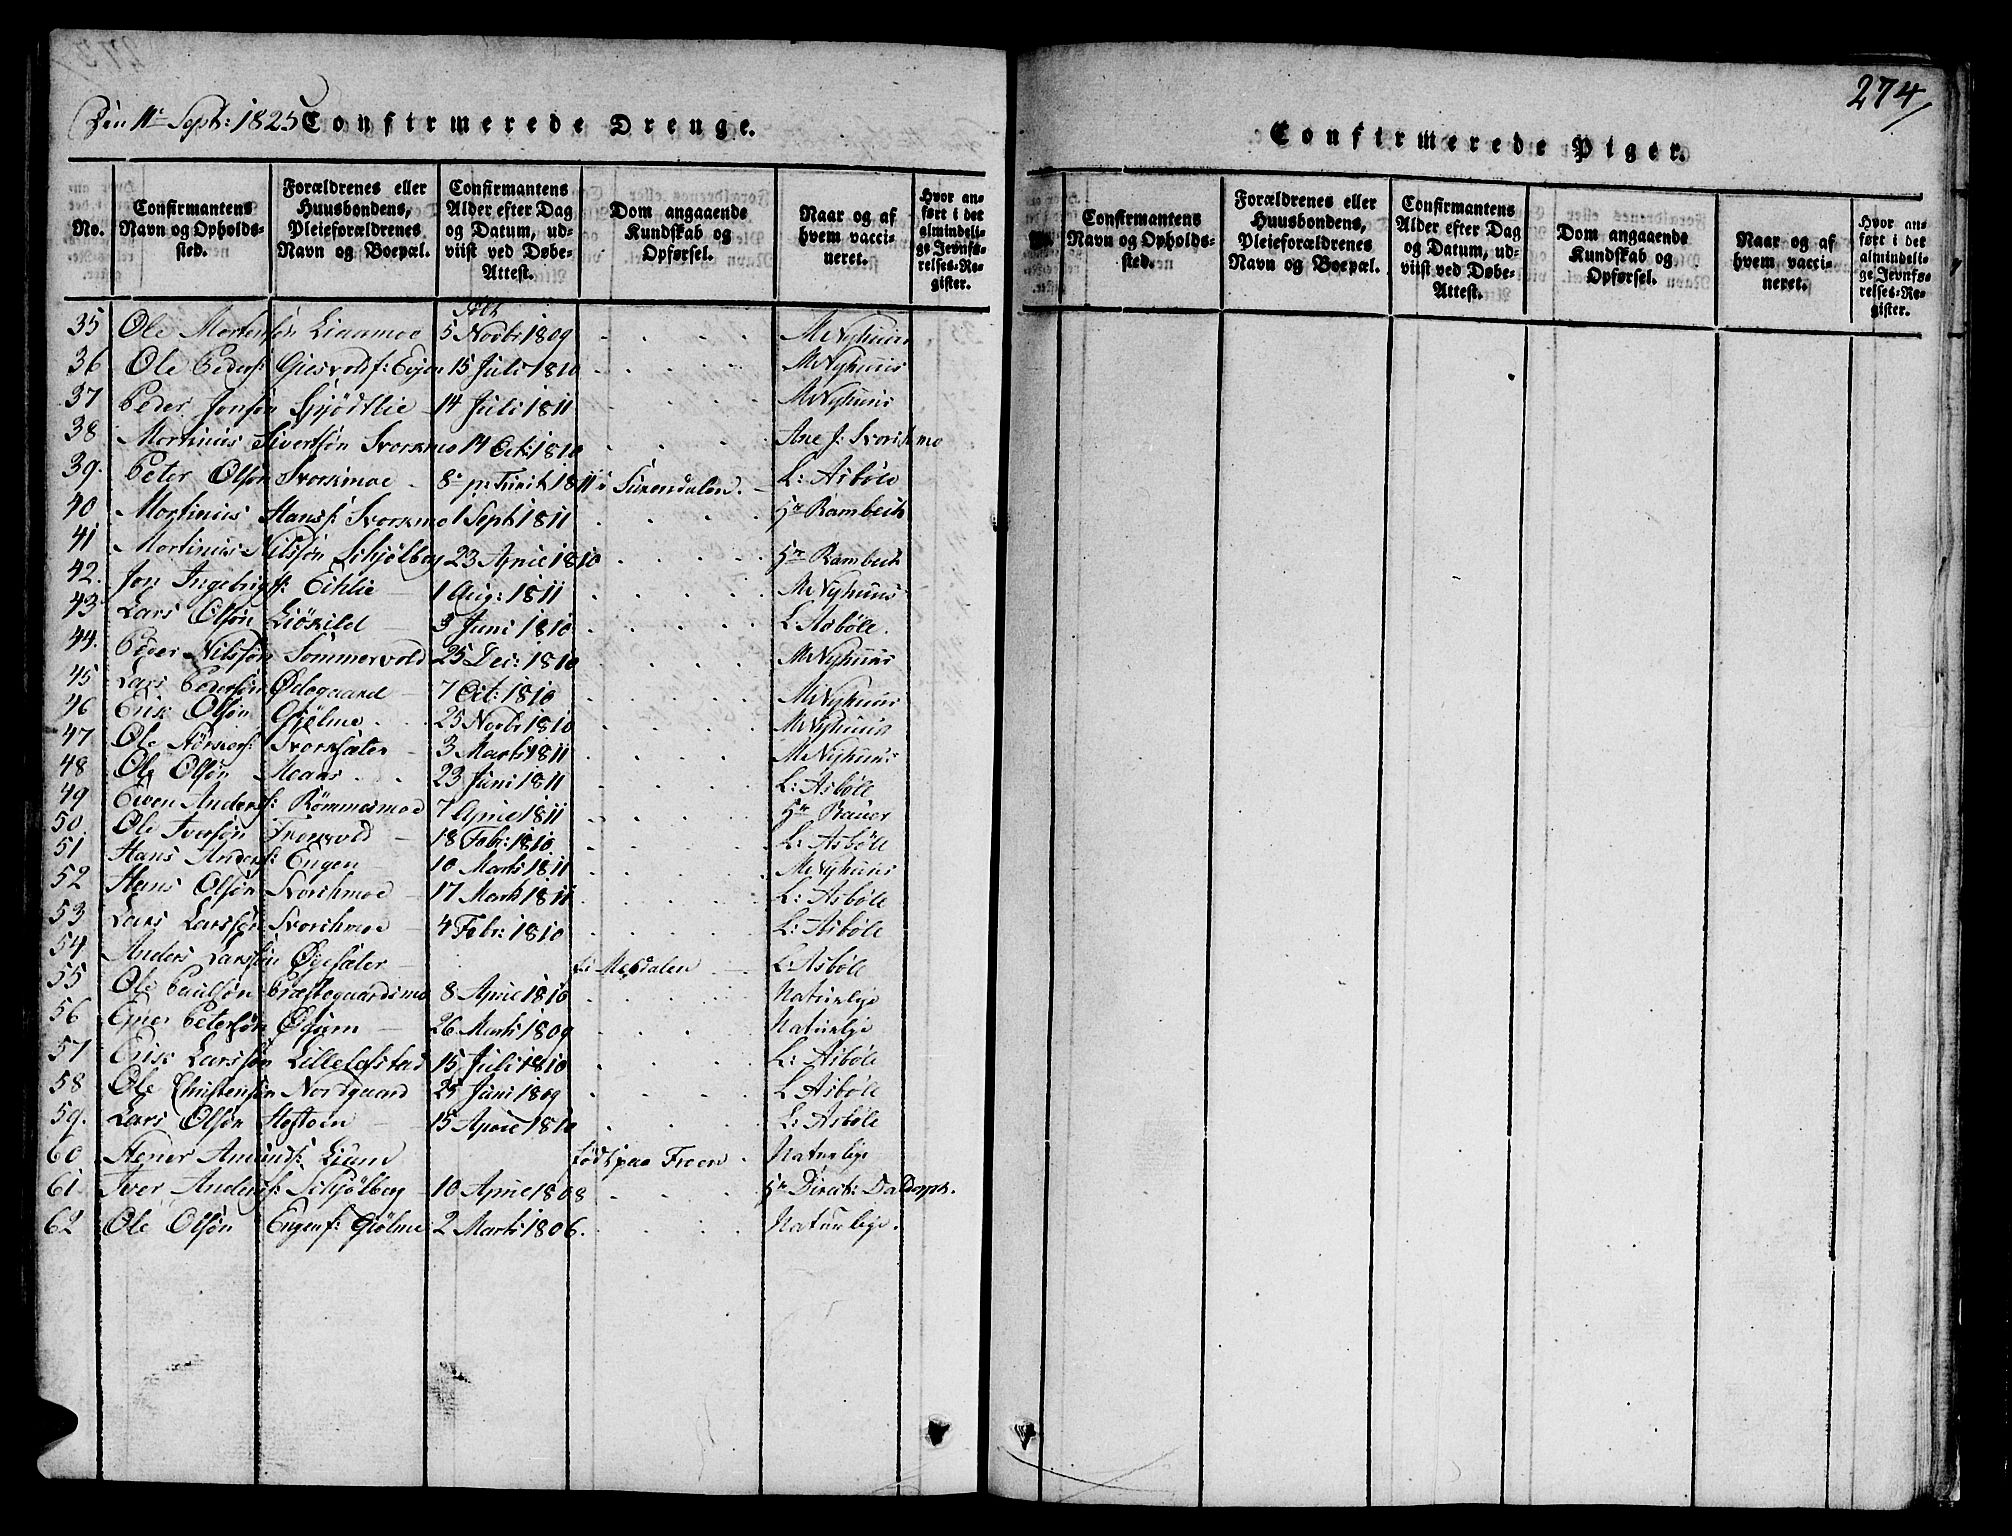 274
Den 11te Sept: 1825 Confirmerede Drenge.
No.
Confirmantens Navn og Opholdssted.
Forældrenes eller Huusbondens, Pleieforældrenes Navn og Boepæl.
Confirmantens Alder efter Dag og Datum, udviist ved Døbe-Attest.
Dom angaaende Kundskab og Opførsel.
Naar og af hvem vaccineret.
Hvor anført i det almindelige Jevnførelses-Register.
35 Ole Mortensøn Liaamoe 5 Novbr 1809 M Nyhuus
36 Ole Peders: Giesvold f: Evjen 15 Juli 1810 M Nyhuus
37 Peder Jonsøn Sjødtlie 14 Juli 1811 M Nyhuus
38 Mortinus Sivertsøn Svorkmo 14 Oct: 1810 Ane J: Svorchmo
39. Peter Olsøn Svorkmoe 8de p: Trinit 1811 i Surendalen. L: Asbøle
40 Mortinus Hans: Svorkmo 1 Sept 1811 Hr Rambech
41 Mortinus Nilssøn Schjølberg 23 April 1810 Hr Rambech
42. Jon Ingebrigts: Eithlie 1 Aug: 1811 M Nyhuus
43 Lars Olsøn Liøkild 3 Juni 1810 L Asbøle.
44. Peder Nilssøn Sommervold 25 Dec: 1810 M Nyhuus
45 Lars Pedersøn Ødegaard 7 Oct: 1810 M Nyhuus
46 Erik Olsøn Gjølme 25 Novbr 1810 M Nyhuus
47 Ole Størkers: Svorksæter 3 Marts 1811 M Nyhuus
48 Ole Olsøn Moans 23 Juni 1811 L: Asbøle
49 Even Anders: Rømmesmoe 7 April 1811 Hr Bauer
50. Ole Iversøn Troevold 18 Febr: 1810 L: Asbøle
51 Hans Anders: Engen 10 Marts 1811 M Nyhuus
52 Hans Olsøn Svorchmoe 17 Marts 1811 L: Asbøle
53 Lars Larssøn Svorchmoe 4 Febr: 1810 L: Asbøle
54 Anders Larssøn Øyesæter i Meldalen L: Asbøle
55 Ole Paulsøn Præstegaardsmo 8 April 1810 Naturlige
56 Ener Petersøn Øyum 26 Marts 1809 Naturlige
57 Erik Larssøn Lillelefstad 15 Juli 1810 L: Asbøle
58 Ole Christensøn Nordgaard 25 Juni 1809 L Asbøle
59. Lars Olsøn Hoston 15 April 1810 L: Asbøle
60 Stener Amunds: Lium født paa Froen Naturlige
61 Iver Anders: Schjølberg 10 April 1808 Hr Direct: Daldorph.
62 Ole Olsøn Engen f: Gjølme 2 Marts 1806. Naturlige.
Confirmerede Piger.
Confirmantens Navn og Opholdssted.
Forældrenes eller Huusbondens, Pleieforældrenes Navn og Boepæl.
Confirmantens Alder efter Dag og Datum, udviist ved Døbe-Attest.
Dom angaaende Kundskab og Opførsel.
Naar og af hvem vaccineret.
Hvor anført i det almindelige Jevnførelses-Register.